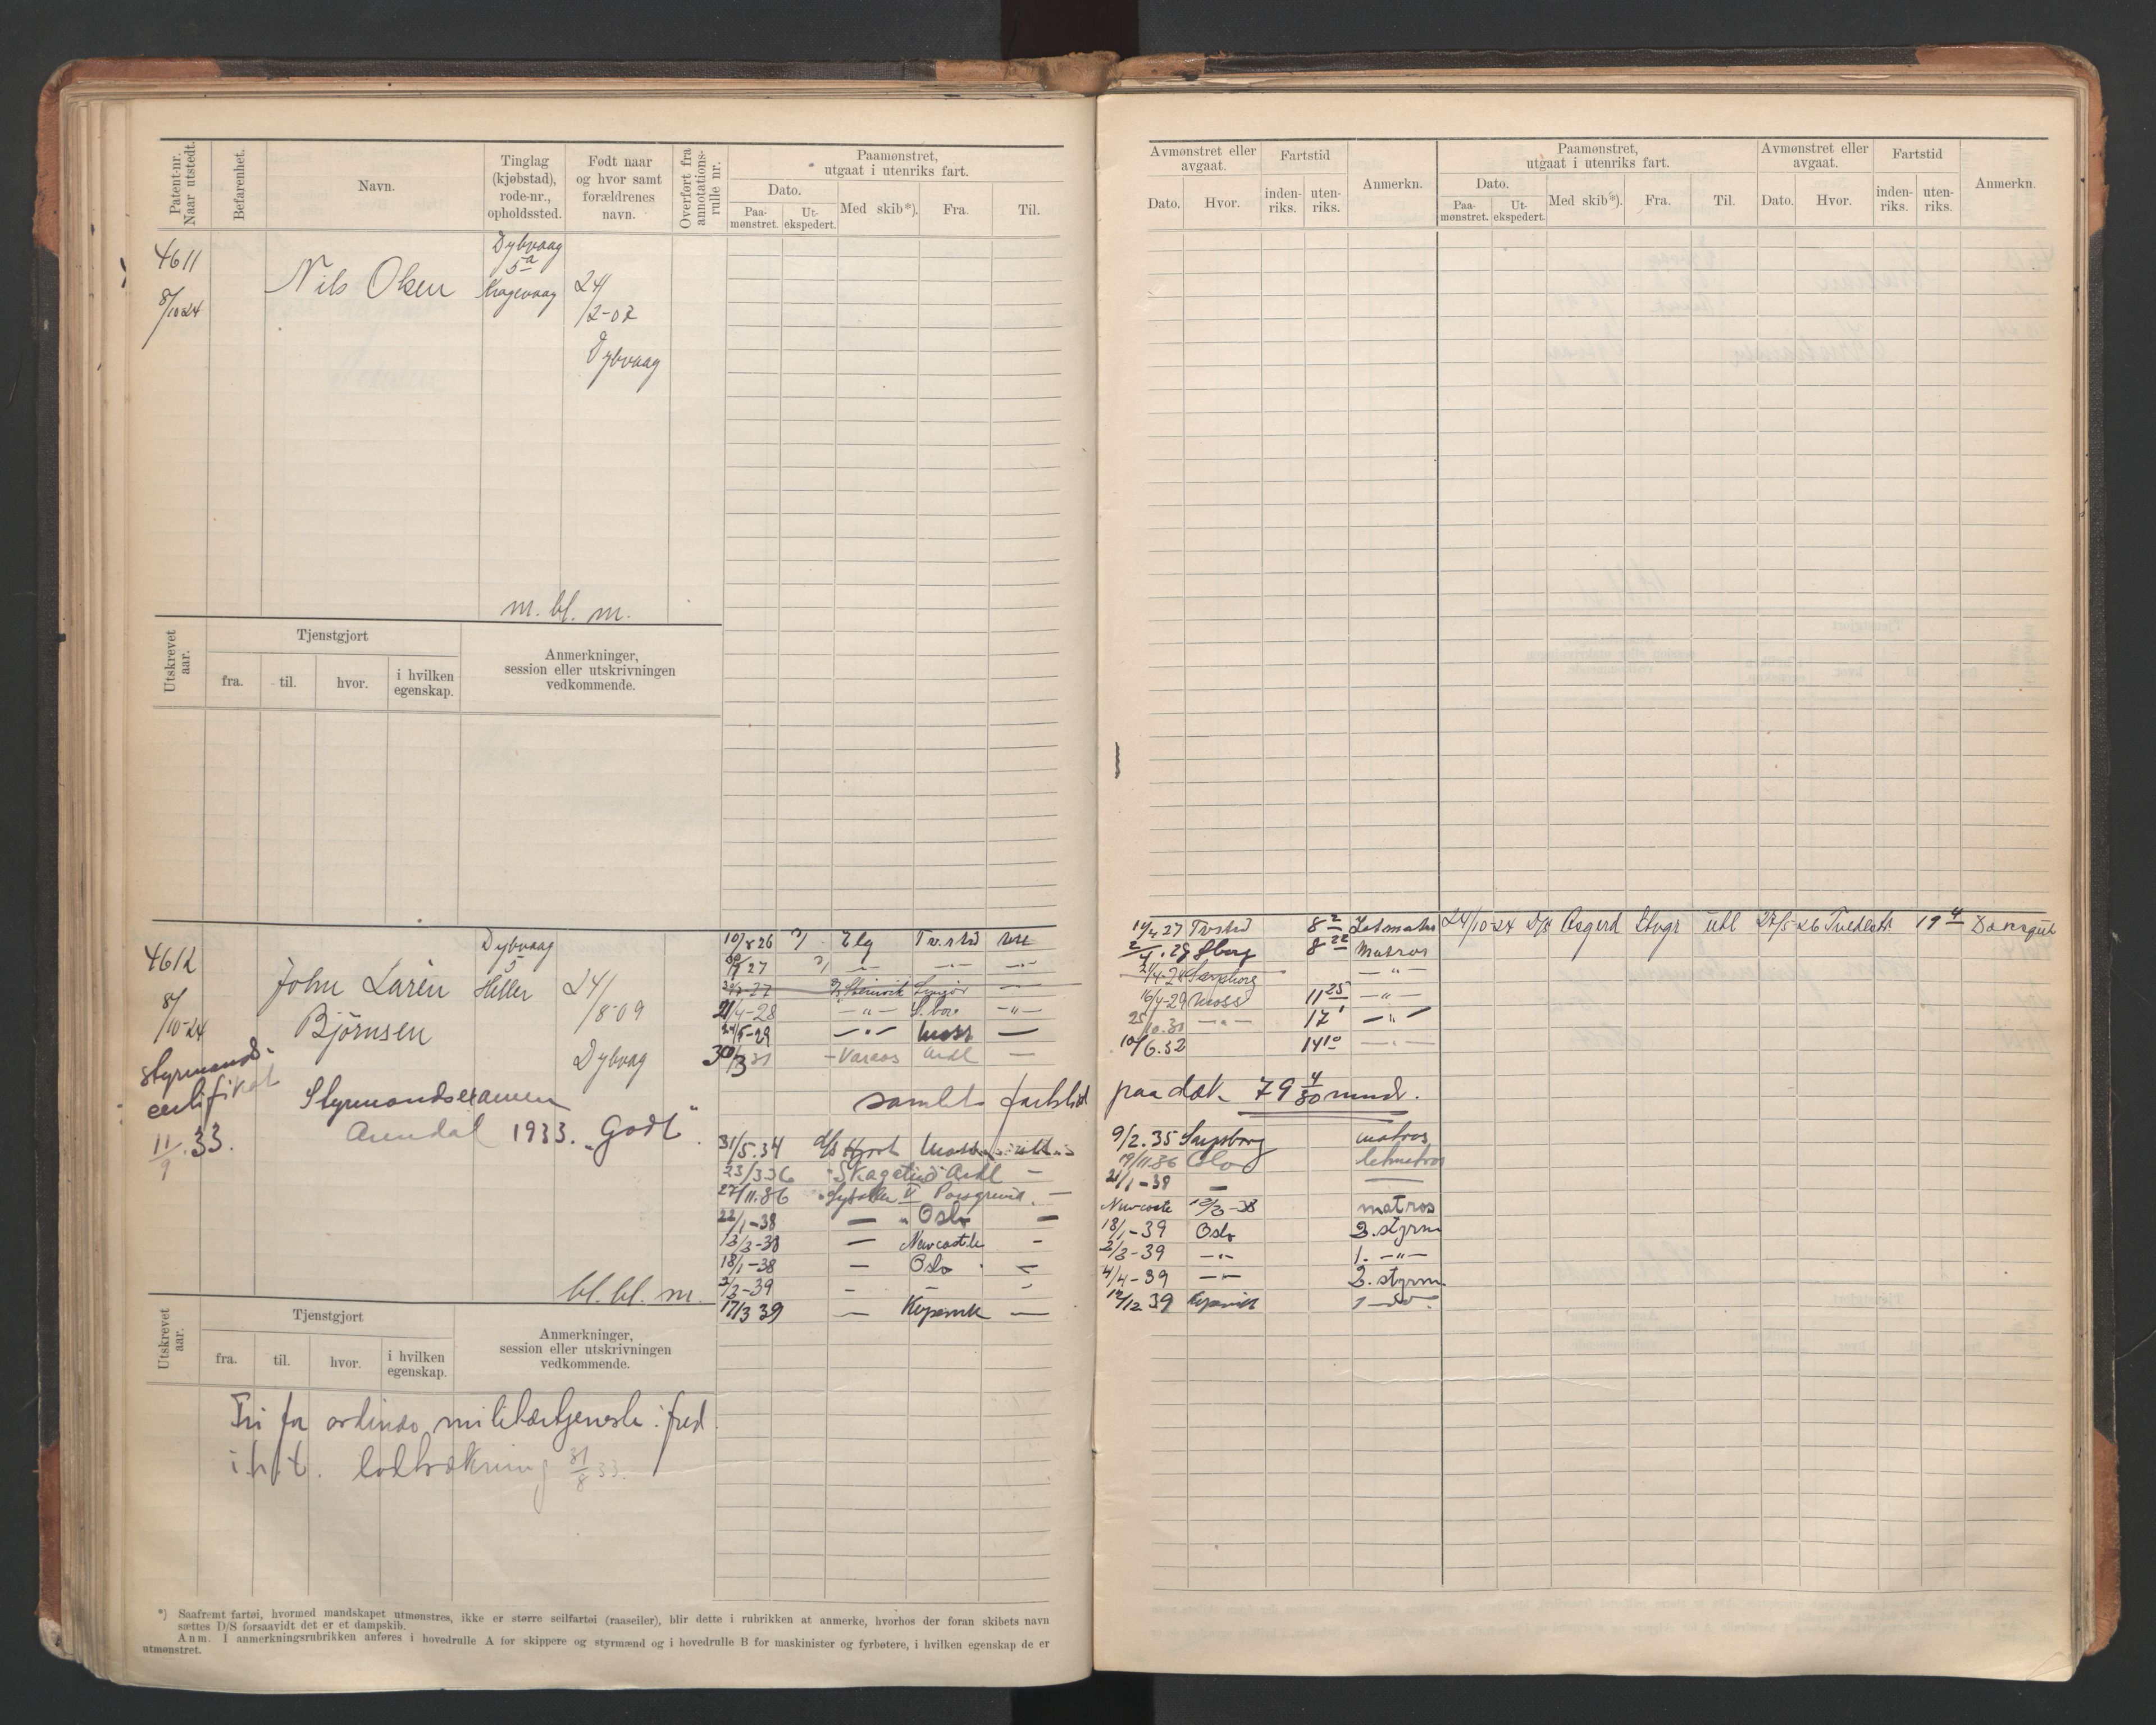 Patent-nr. Naar utstedt.
Befarenhet.
Navn.
Tinglag (kjøbstad), rode-nr., opholdssted.
Født naar og hvor samt forældrenes navn.
Overført fra annotationsrulle nr.
Paamønstret, utgaat i utenriks fart.
Dato.
Paamønstret.
Utekspedert.
Med skib*).
Fra.
Til.
4611
8/10-24
Nils Olsen
Dybvaag
5a
Krogevaag
24/2-02
Dybvaag
m. bl. m.
Utskrevet aar.
Tjenstgjort
fra.
til.
hvor.
i hvilken egenskap.
Anmerkninger, session eller utskrivningen vedkommende.
4612
8/10-24
John Larin
Björnsen
Dybvaag
5
24/8-09
Dybvag
Styrmands-
certifikat
11/9.33.
Styrmandsexamen
Arendal 1933. "Godt".
bl. bl. m.
10/8 26 Elg
27
21/4-28 S.borg
24/5-29 Moss
samlet fartstid
31/5.34 d/s Hjort Moss
23/3 36 Skagerud Ardl
27/11.36
22/1-38 Oslo
13/3-38 Newcastle
18/1-38 Oslo
2/3-39
17/3 39
Utskrevet aar.
Tjenstgjort
fra.
til.
hvor.
i hvilken egenskap.
Anmerkninger, session eller utskrivningen vedkommende.
Fri for ordinær militærtjeneste i fred
i.h.t. lodtrækning 31/8 33.
*) Saafremt fartøi, hvormed mandskapet utmønstres, ikke er større seilfartøi (raaseiler), blir dette i rubrikken at anmerke, hvorhos der foran skibets navn
sættes D/S forsaavidt det er et dampskib.
Anm. I anmerkningsrubrikken anføres i hovedrulle A for skippere og styrmænd og i hovedrulle B for maskinister og fyrbøtere, i hvilken egenskap de er
utmønstret.
Avmønstret eller avgaat.
Dato.
Hvor.
Fartstid
inden-riks.
uten-riks.
Anmerkn.
Paamønstret, utgaat i utenriks fart.
Dato.
Paamønstret.
Utekspedert.
Med skib*).
Fra.
Til.
Avmønstret eller avgaat.
Dato.
Hvor.
Fartstid
inden-riks.
uten-riks.
Anmerkn.
8 2 Letmatros 24/10-24 D/S Asgerd utl 27/5-26 19 4
8 22 Matros
Sarpsborg
16/4-29 Moss 11 25
25/10.30 17 1
10/6.32 14 10
paa dæk 79 4/30 mnd.
9/2.35 Sarpsborg matros
19/11.36 Oslo letmatros
21/1-38
Newcastle 12/3-38 matros
18/1-39 Oslo 2. styrm
2/3-39 1. -"-
4/4-39 2. styrm.
12/12 39 1 - do -